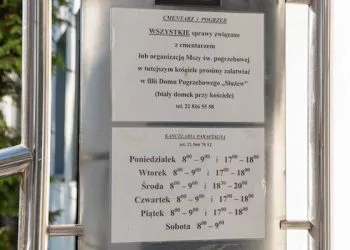 CMENTARZ i POGRZEB
WSZYSTKIE sprawy związane
z cmentarzem
lub organizacją Mszy św. pogrzebowej
w tutejszym kościele prosimy załatwiać
w filii Domu Pogrzebowego „Służew"
(biały domek przy kościele)
tel. 22 816 55 58
KANCELARIA PARAFIALNA
tel. 22 566 78 52
Poniedziałek 8⁰⁰ – 9⁰⁰ i 17⁰⁰ – 18⁰⁰
Wtorek 8⁰⁰ – 9⁰⁰ i 17⁰⁰ – 18⁰⁰
Środa 8⁰⁰ – 9⁰⁰ i 18³⁰ – 20⁰⁰
Czwartek 8⁰⁰ – 9⁰⁰ i 17⁰⁰ – 18⁰⁰
Piątek 8⁰⁰ – 9⁰⁰ i 17⁰⁰ – 18⁰⁰
Sobota 8⁰⁰ – 9⁰⁰